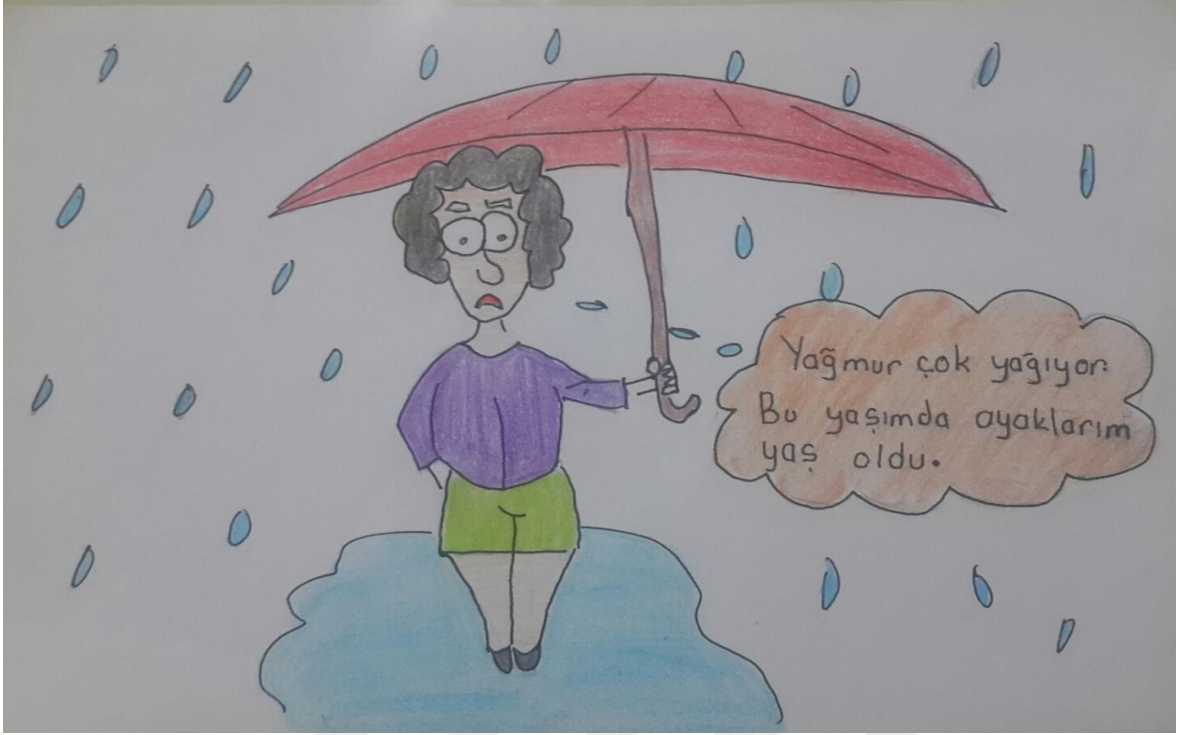 Yağmur çok yağıyor.
Bu yaşımda ayaklarım
yaş oldu.